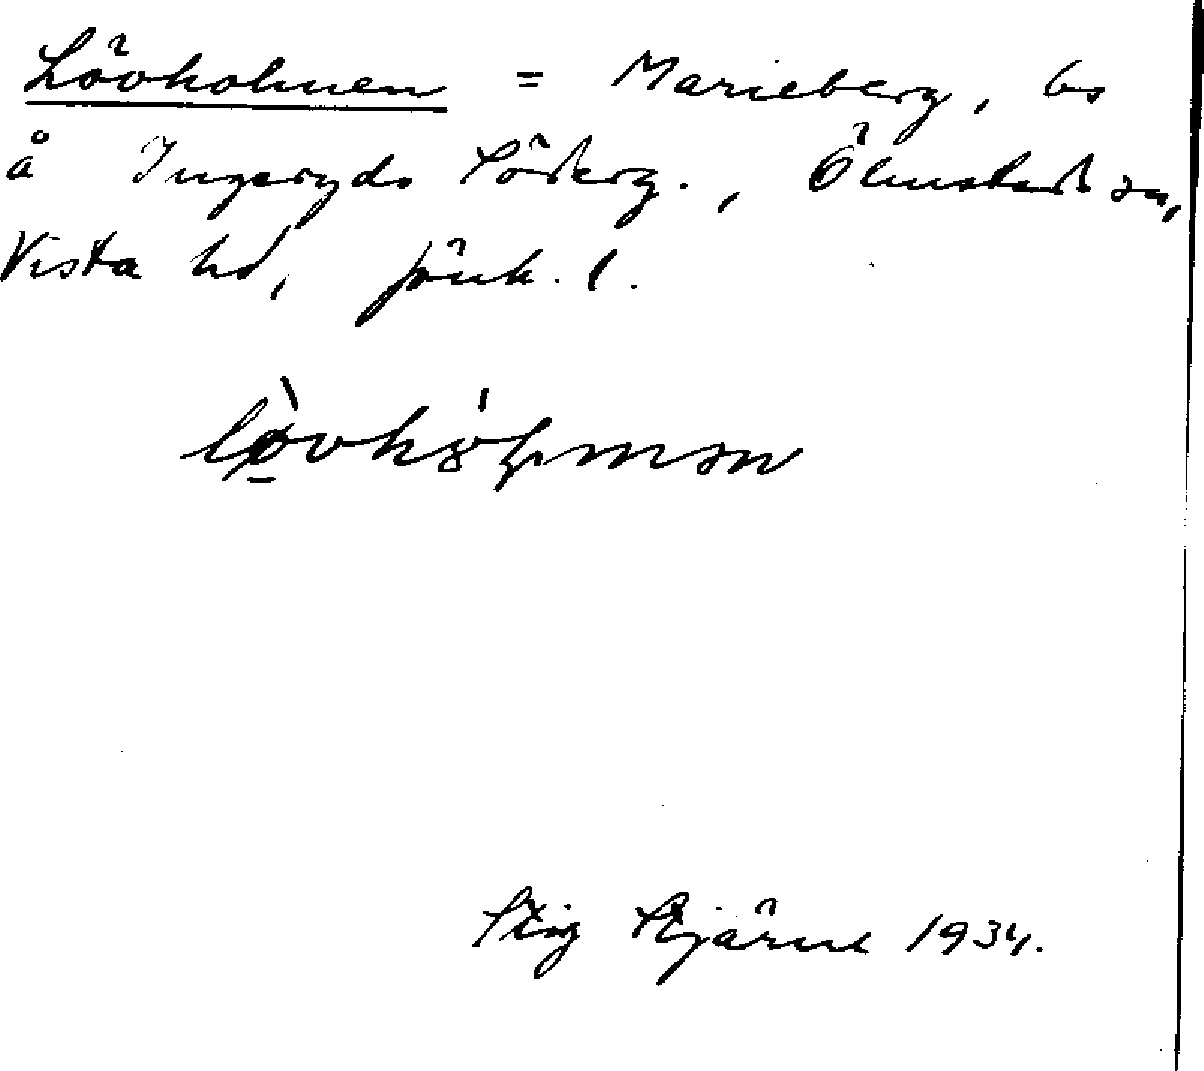 Lövholmen = Marieberg, bs
å Ingeryds Söderg., Ölmstads sn,
Vista hd, Jönk. l.
Stig Stjärne 1934.